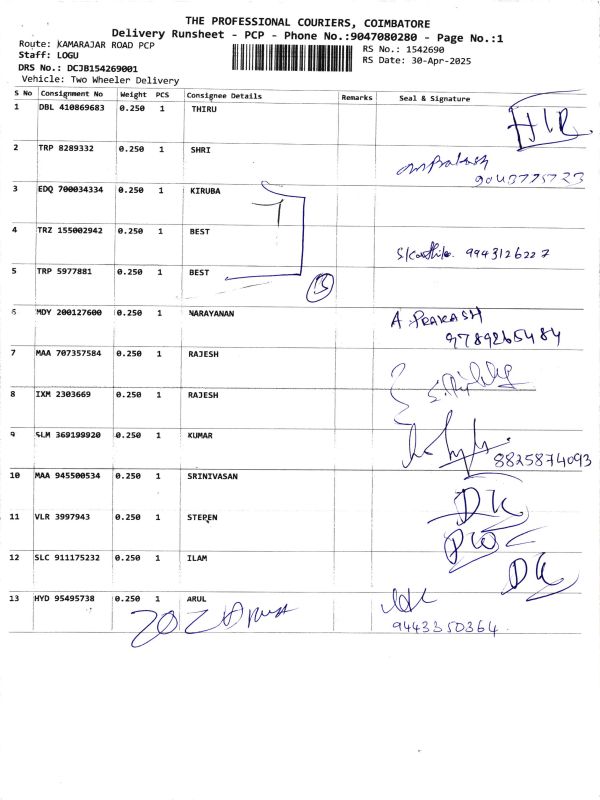 THE PROFESSIONAL COURIERS, COIMBATORE
Delivery Runsheet - PCP - Phone No.:9047080280 - Page No.:1
Route: KAMARAJAR ROAD PCP
RS No.: 1542690
Staff: LOGU
RS Date: 30-Apr-2025
DRS No.: DCJB154269001
Vehicle: Two Wheeler Delivery
S No Consignment No Weight PCS Consignee Details Remarks Seal & Signature
1 DBL 410869683 0.250 1 THIRU
2 TRP 8289332 0.250 1 SHRI
9043775723
3 EDQ 700034334 0.250 1 KIRUBA
4 TRZ 155002942 0.250 1 BEST
9943126227
5 TRP 5977881 0.250 1 BEST
6 MDY 200127600 0.250 1 NARAYANAN A PRAKASH
9789265484
7 MAA 707357584 0.250 1 RAJESH
8 IXM 2303669 0.250 1 RAJESH
9 SLM 369199920 0.250 1 KUMAR
8825874093
10 MAA 945500534 0.250 1 SRINIVASAN
11 VLR 3997943 0.250 1 STEPEN
12 SLC 911175232 0.250 1 ILAM
13 HYD 95495738 0.250 1 ARUL
9443350364